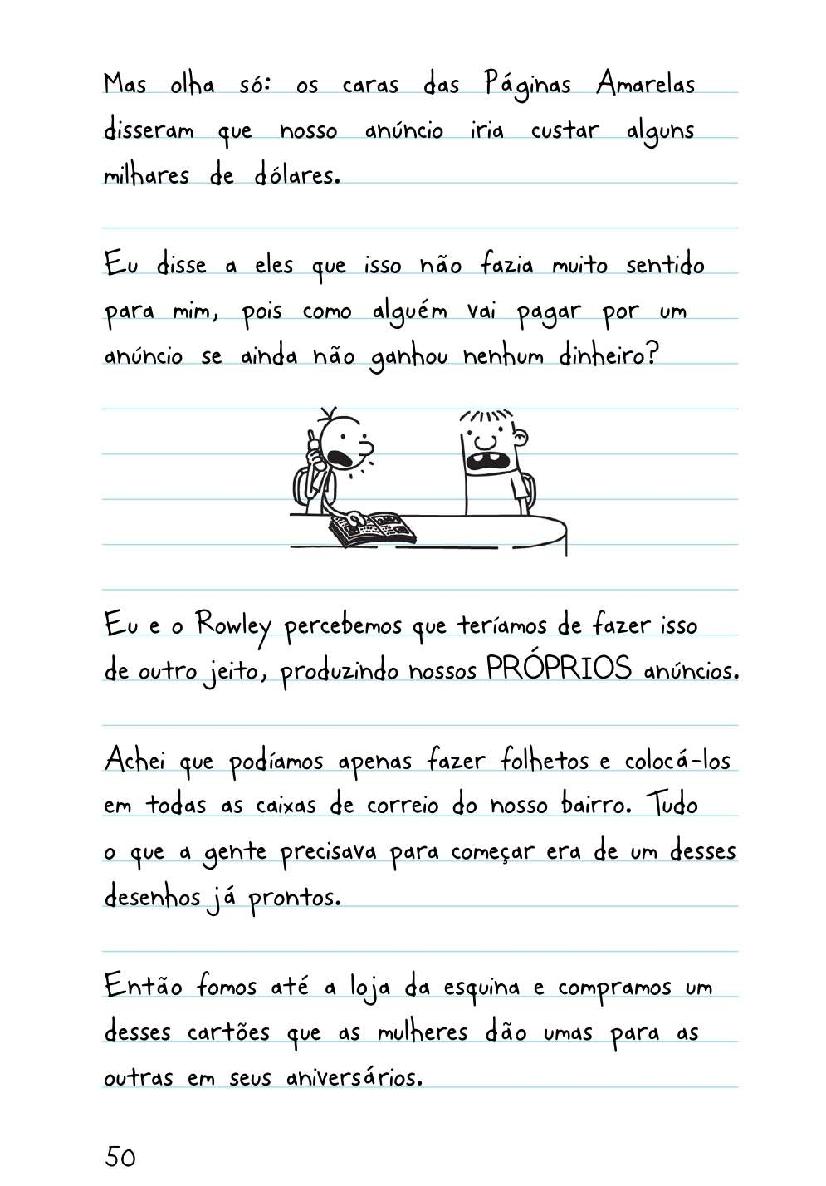 Mas olha só: os caras das Páginas Amarelas
disseram que nosso anúncio iria custar alguns
milhares de dólares.
Eu disse a eles que isso não fazia muito sentido
para mim, pois como alguém vai pagar por um
anúncio se ainda não ganhou nenhum dinheiro?
Eu e o Rowley percebemos que teríamos de fazer isso
de outro jeito, produzindo nossos PRÓPRIOS anúncios.
Achei que podíamos apenas fazer folhetos e colocá-los
em todas as caixas de correio do nosso bairro. Tudo
o que a gente precisava para começar era de um desses
desenhos já prontos.
Então fomos até a loja da esquina e compramos um
desses cartões que as mulheres dão umas para as
outras em seus aniversários.
50